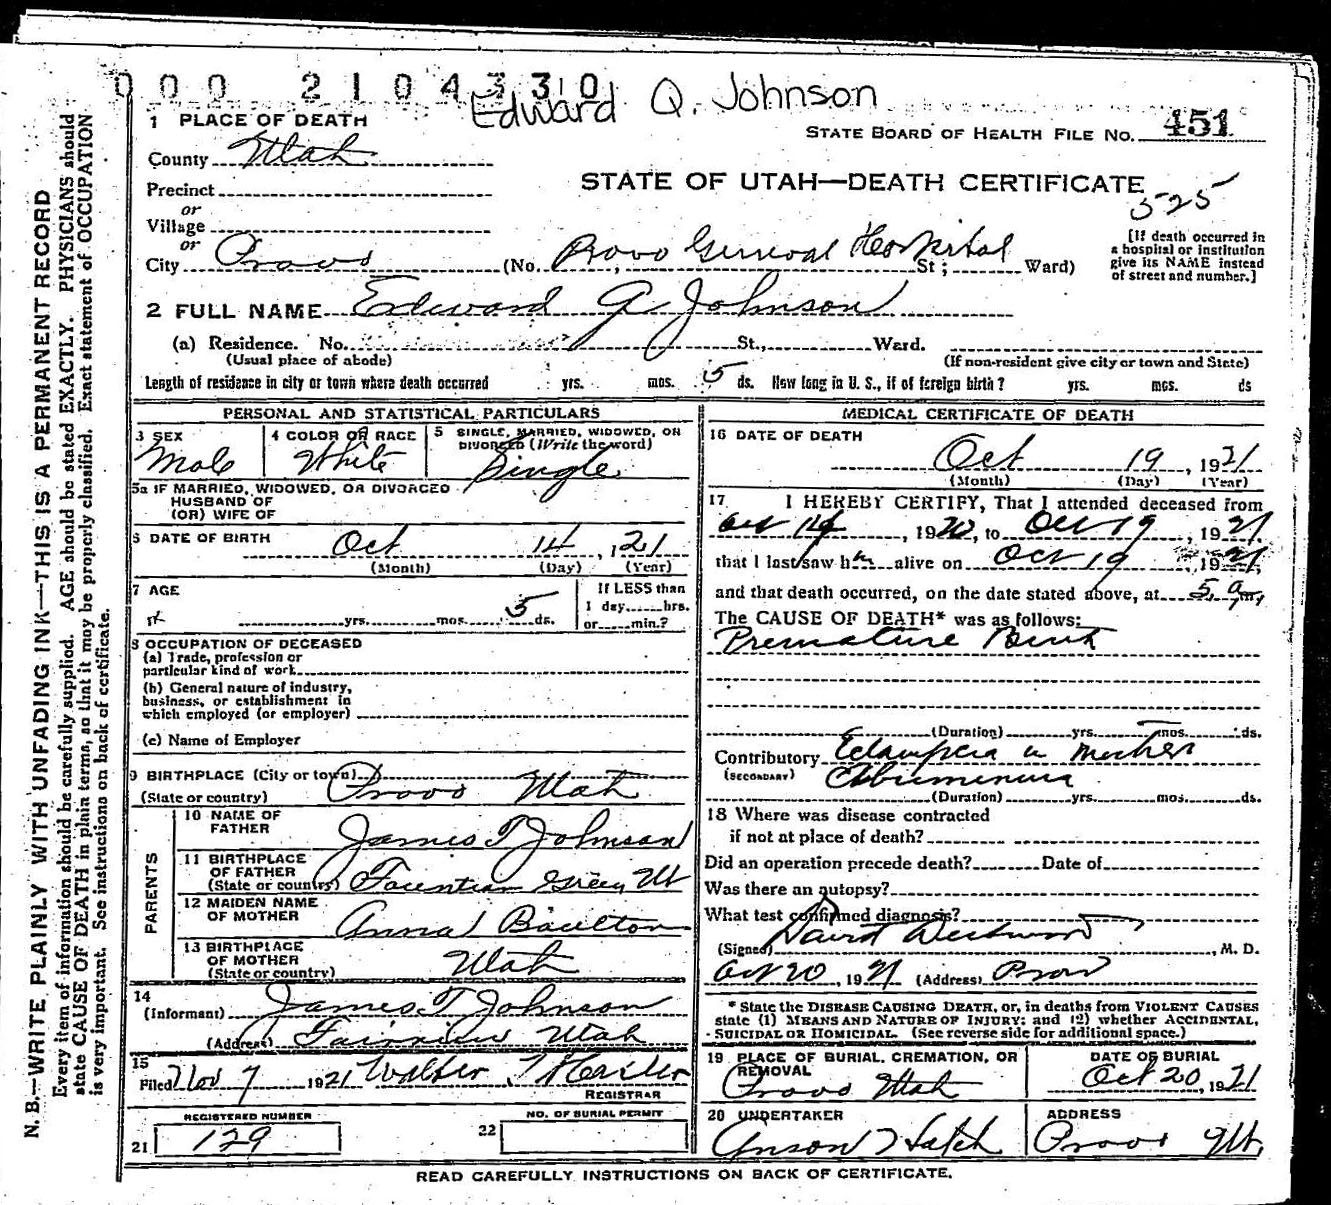 000 2104330
Edward Q. Johnson
1 PLACE OF DEATH
STATE BOARD OF HEALTH FILE No. 451
County Utah
STATE OF UTAH—DEATH CERTIFICATE
525
Precinct
or
Village
or
City Provo (No. Provo General Hospital St; Ward)
[If death occurred in
a hospital or institution
give its NAME instead
of street and number.]
2 FULL NAME Edward Q Johnson
(a) Residence. No. St., Ward.
(Usual place of abode) (If non-resident give city or town and State)
Length of residence in city or town where death occurred yrs. mos. 5 ds. How long in U. S., if of foreign birth? yrs. mos. ds
PERSONAL AND STATISTICAL PARTICULARS
3 SEX
Male
4 COLOR OR RACE
White
5 SINGLE, MARRIED, WIDOWED, OR
DIVORCED (Write the word)
Single
5a IF MARRIED, WIDOWED, OR DIVORCED
HUSBAND OF
(OR) WIFE OF
6 DATE OF BIRTH Oct 14, 21
(Month) (Day) (Year)
7 AGE
yrs. mos. 5 ds.
If LESS than
1 day hrs.
or min.?
8 OCCUPATION OF DECEASED
(a) Trade, profession or
particular kind of work
(b) General nature of industry,
business, or establishment in
which employed (or employer)
(c) Name of Employer
9 BIRTHPLACE (City or town)
(State or country) Provo Utah
PARENTS
10 NAME OF
FATHER James T Johnson
11 BIRTHPLACE
OF FATHER
(State or country) Fountain Green Ut
12 MAIDEN NAME
OF MOTHER Anna Boulton
13 BIRTHPLACE
OF MOTHER
(State or country) Utah
14
(Informant) James T Johnson
(Address) Fairview Utah
15
Filed Nov 7 1921 Walter T Hasler
REGISTRAR
REGISTERED NUMBER
21 129
NO. OF BURIAL PERMIT
22
MEDICAL CERTIFICATE OF DEATH
16 DATE OF DEATH
Oct 19, 1921
(Month) (Day) (Year)
17 I HEREBY CERTIFY, That I attended deceased from
Oct 14, 1921, to Oct 19, 1921,
that I last saw him alive on Oct 19, 1921,
and that death occurred, on the date stated above, at 5 am.
The CAUSE OF DEATH* was as follows:
Premature Birth
(Duration) yrs. mos. ds.
Contributory Eclampcia in mother
(SECONDARY) Albuminuria
(Duration) yrs. mos. ds.
18 Where was disease contracted
if not at place of death?
Did an operation precede death? Date of
Was there an autopsy?
What test confirmed diagnosis?
(Signed) David Westwood, M. D.
Oct 20, 1921 (Address) Provo
* State the DISEASE CAUSING DEATH, or, in deaths from VIOLENT CAUSES
state (1) MEANS AND NATURE OF INJURY; and (2) whether ACCIDENTAL,
SUICIDAL OR HOMICIDAL. (See reverse side for additional space.)
19 PLACE OF BURIAL, CREMATION, OR
REMOVAL
Provo Utah
DATE OF BURIAL
Oct 20, 1921
20 UNDERTAKER
Anson Hatch
ADDRESS
Provo Ut.
READ CAREFULLY INSTRUCTIONS ON BACK OF CERTIFICATE.
N. B.—WRITE PLAINLY WITH UNFADING INK—THIS IS A PERMANENT RECORD
Every item of information should be carefully supplied. AGE should be stated EXACTLY. PHYSICIANS should
state CAUSE OF DEATH in plain terms, so that it may be properly classified. Exact statement of OCCUPATION
is very important. See instructions on back of certificate.